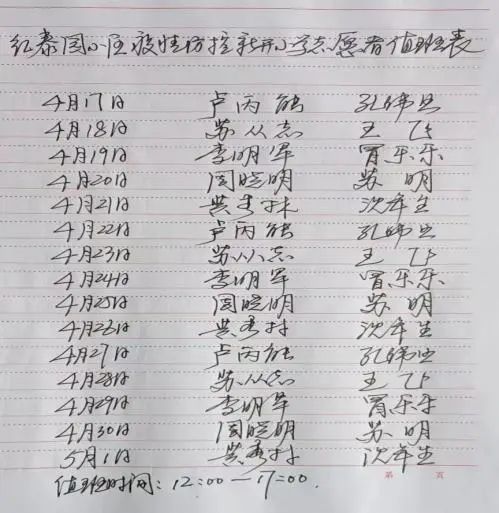 红泰园小区疫情防控新开小学志愿者值班表
4月17日 卢丙能 孔纬国
4月18日 苏从志 王飞
4月19日 李明军 冒乐乐
4月20日 周晓明 苏明
4月21日 黄秀林 沈年生
4月22日 卢丙能 孔纬国
4月23日 苏从志 王飞
4月24日 李明军 冒乐乐
4月25日 周晓明 苏明
4月26日 黄秀林 沈年生
4月27日 卢丙能 孔纬国
4月28日 苏从志 王飞
4月29日 李明军 冒乐乐
4月30日 周晓明 苏明
5月1日 黄秀林 沈年生
值班时间：12:00—17:00.
第 页